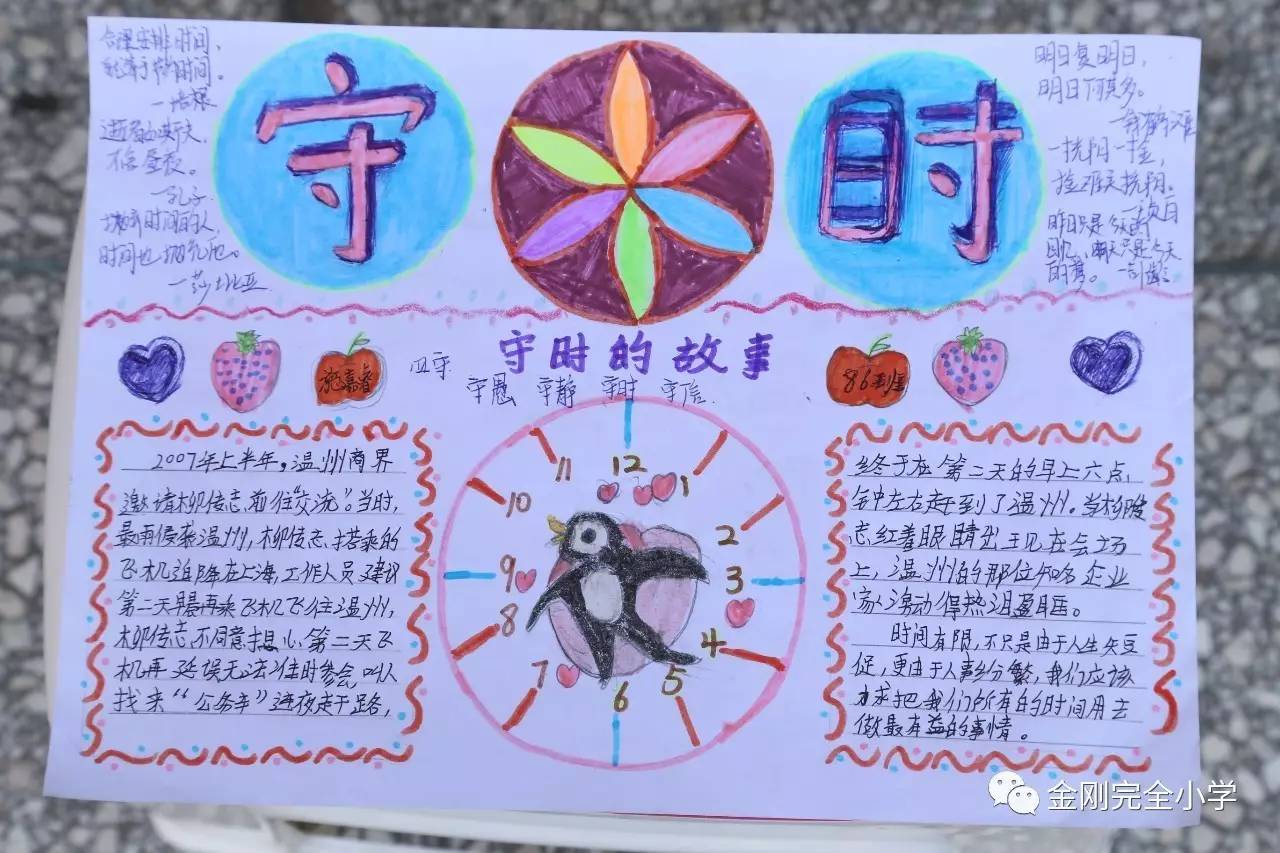 合理安排时间,
就等于节约时间。
一培根
逝者如斯夫,
不舍昼夜。
一孔子
抛弃时间的人,
时间也抛弃他。
一莎士比亚
守时
明日复明日,
明日何其多。
一寸光阴一寸金,
昨日只是今天的
回忆,明天只是今天
的梦。
守时的故事
四守
守愚 守静 守时 守信
施嘉睿
2007年上半年,温州商界
邀请柳传志前往“交流”。当时,
暴雨侵袭温州,柳传志搭乘的
飞机迫降在上海,工作人员建议
第二天早晨再乘飞机飞往温州,
柳传志不同意,担心第二天飞
机再延误无法准时参会,叫人
找来“公务车”连夜赶路,
11 12 1
10 2
9 3
8 4
7 6 5
终于在第二天的早上六点
钟左右赶到了温州。当柳传
志红着眼睛出现在会场
上,温州的那位知名企业
家激动得热泪盈眶。
时间有限,不只是由于人生短
促,更由于人事纷繁,我们应该
力求把我们所有的时间用去
做最有益的事情。
金刚完全小学